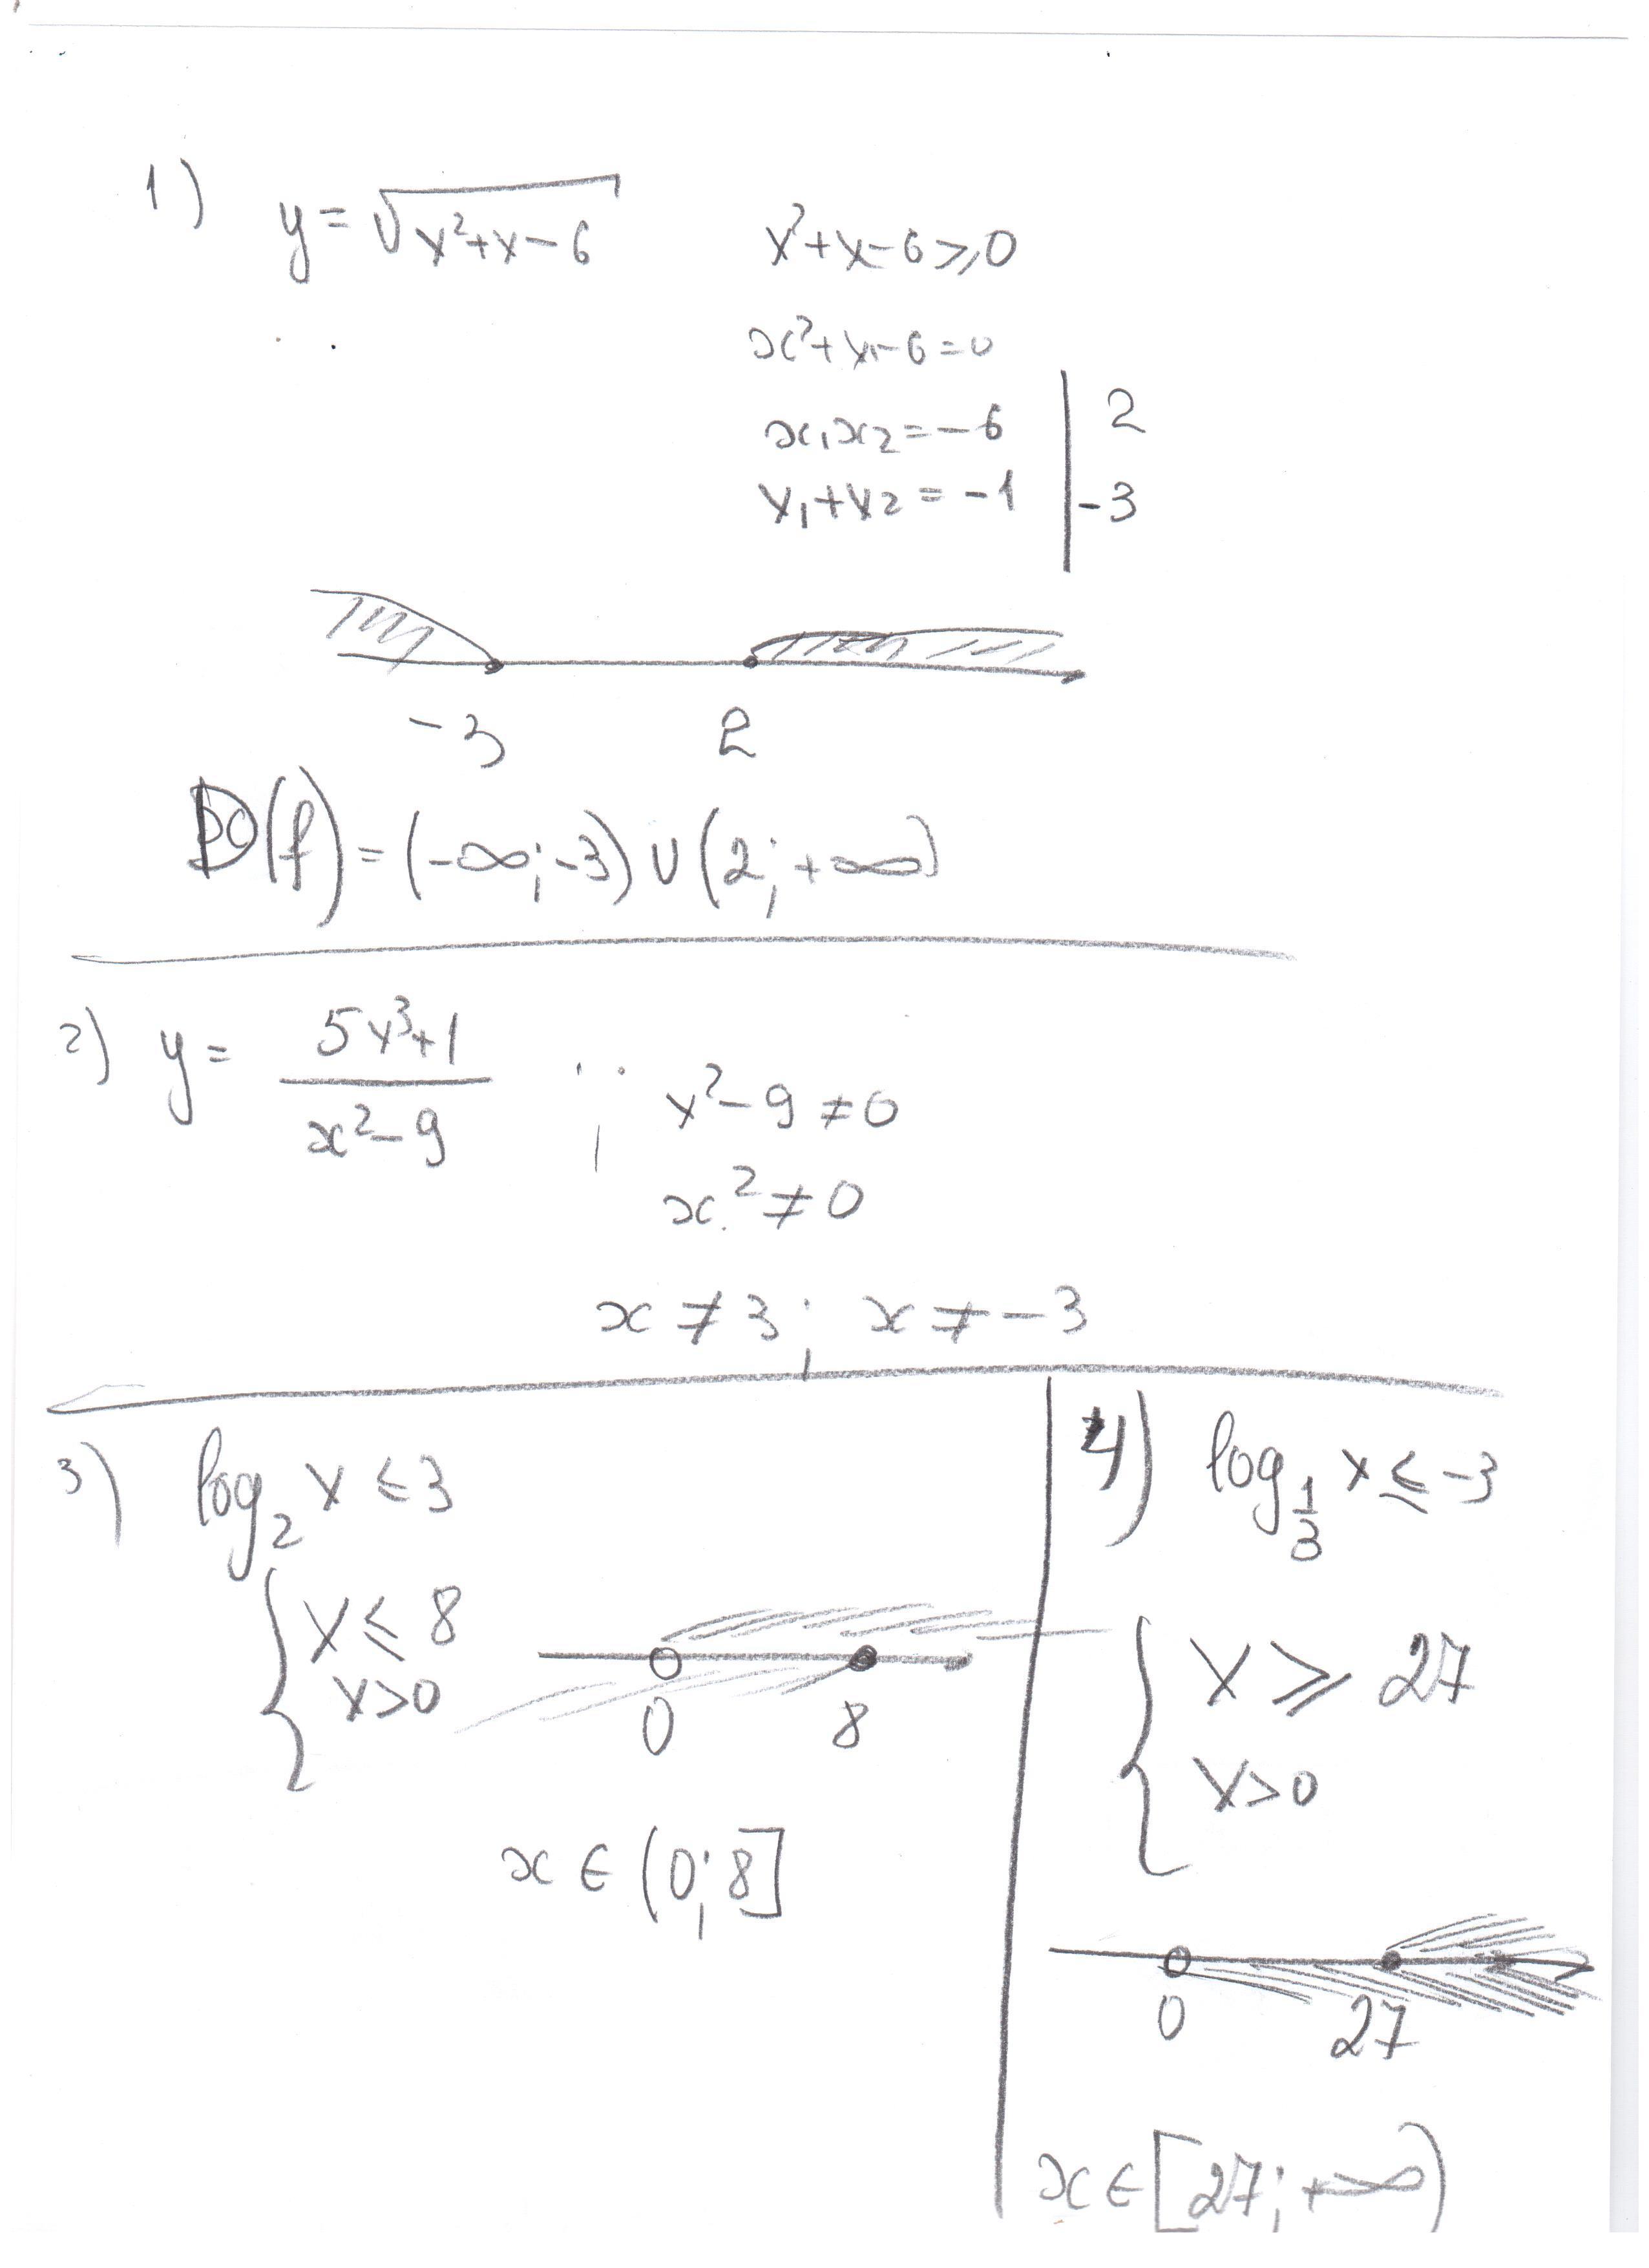 1) y = √(x²+x−6)    x²+x−6 ⩾ 0
x²+x−6=0
x₁x₂ = −6 | 2
x₁+x₂ = −1 | −3
−3    2
D(f) = (−∞; −3) ∪ (2; +∞)
2) y = (5x³+1)/(x²−9) ; x²−9 ≠ 0
x² ≠ 0
x ≠ 3; x ≠ −3
3) log₂ x ≤ 3
{ x ≤ 8
x > 0
0    8
x ∈ (0; 8]
4) log_{1/3} x ≤ −3
{ x ⩾ 27
x > 0
0    27
x ∈ [27; +∞)